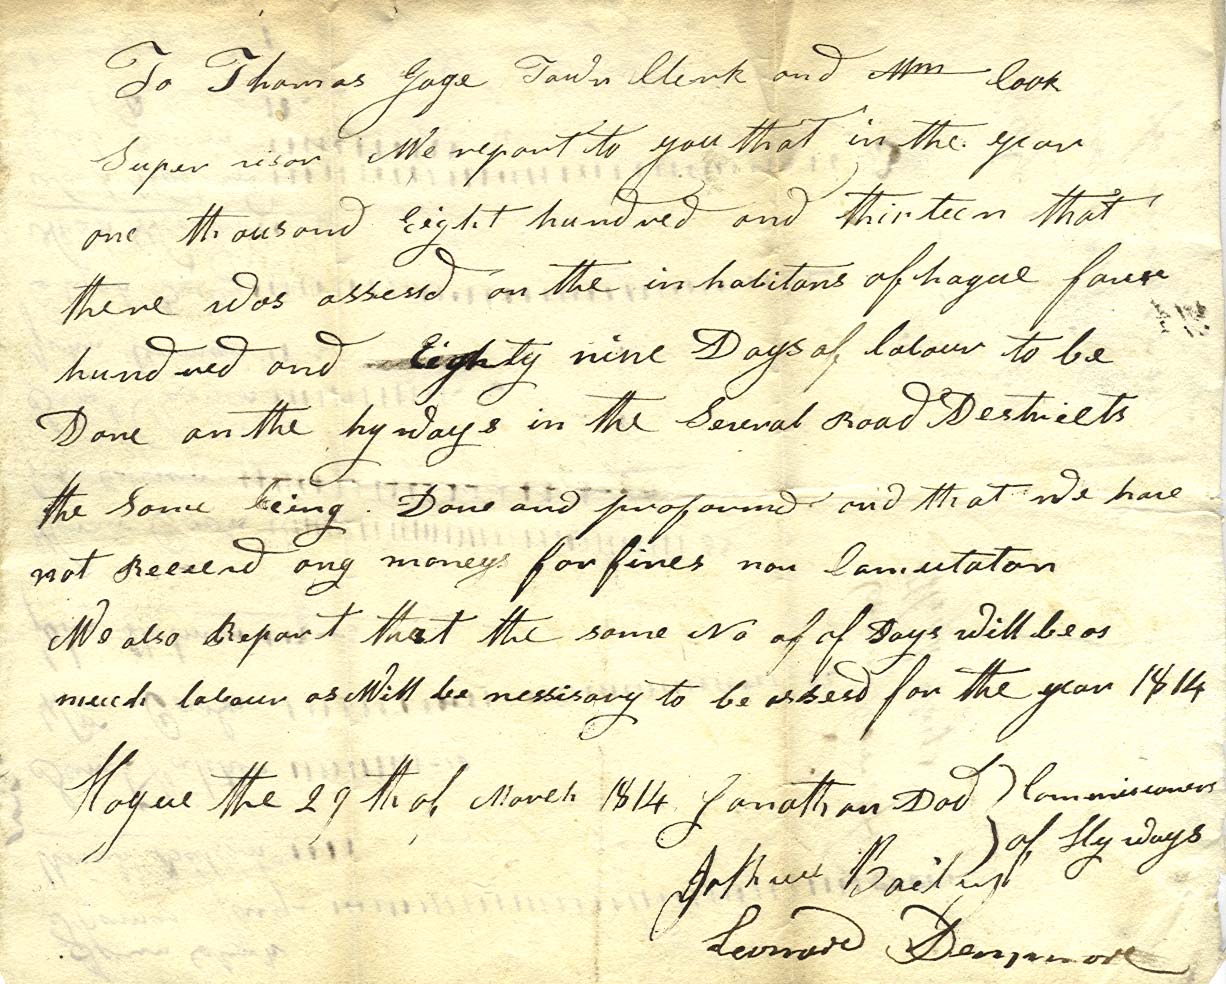 To Thomas Gage Town Clerk and Wm Cook
Super visor We report to you that in the year
one thousand Eight hundred and thirteen that
there was assessd on the inhabitans of hague four
hundred and Eighty nine Days of labour to be
Done on the hyways in the Several Road Destricts
the Same being Done and proformd and that we have
not Receevd any moneys for fines nor Comutaton
We also Report that the same No of of Days will be as
much labour as Will be nessisary to be assesd for the year 1814
Hague the 29th of March 1814 Jonathan Dod Commissioners
of Hy ways
Joshua Baily
Leonard Densmore